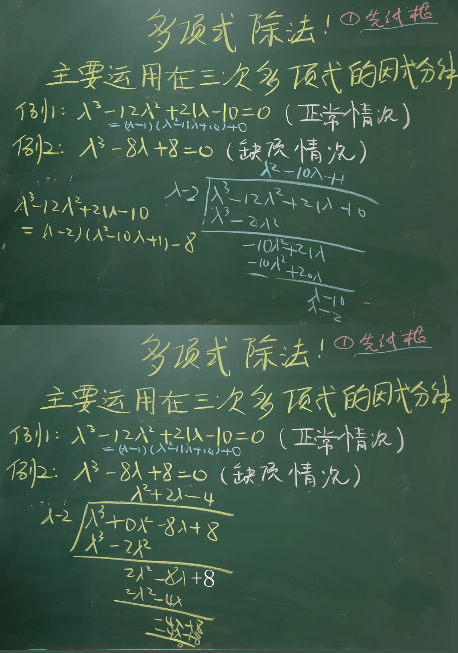 多项式除法! ①先试根
主要运用在三次多项式的因式分解
例1: λ³-12λ²+21λ-10=0 (正常情况)
=(λ-1)(λ²-11λ+10)+0
例2: λ³-8λ+8=0 (缺项情况)
λ²-10λ+1
λ-2 λ³-12λ²+21λ-10
λ³-2λ²
-10λ²+21λ
-10λ²+20λ
λ-10
λ-2
λ³-12λ²+21λ-10
=(λ-2)(λ²-10λ+1)-8
多项式除法! ①先试根
主要运用在三次多项式的因式分解
例1: λ³-12λ²+21λ-10=0 (正常情况)
=(λ-1)(λ²-11λ+10)+0
例2: λ³-8λ+8=0 (缺项情况)
λ²+2λ-4
λ-2 λ³+0λ²-8λ+8
λ³-2λ²
2λ²-8λ+8
2λ²-4λ
-4λ+8
-4λ+8